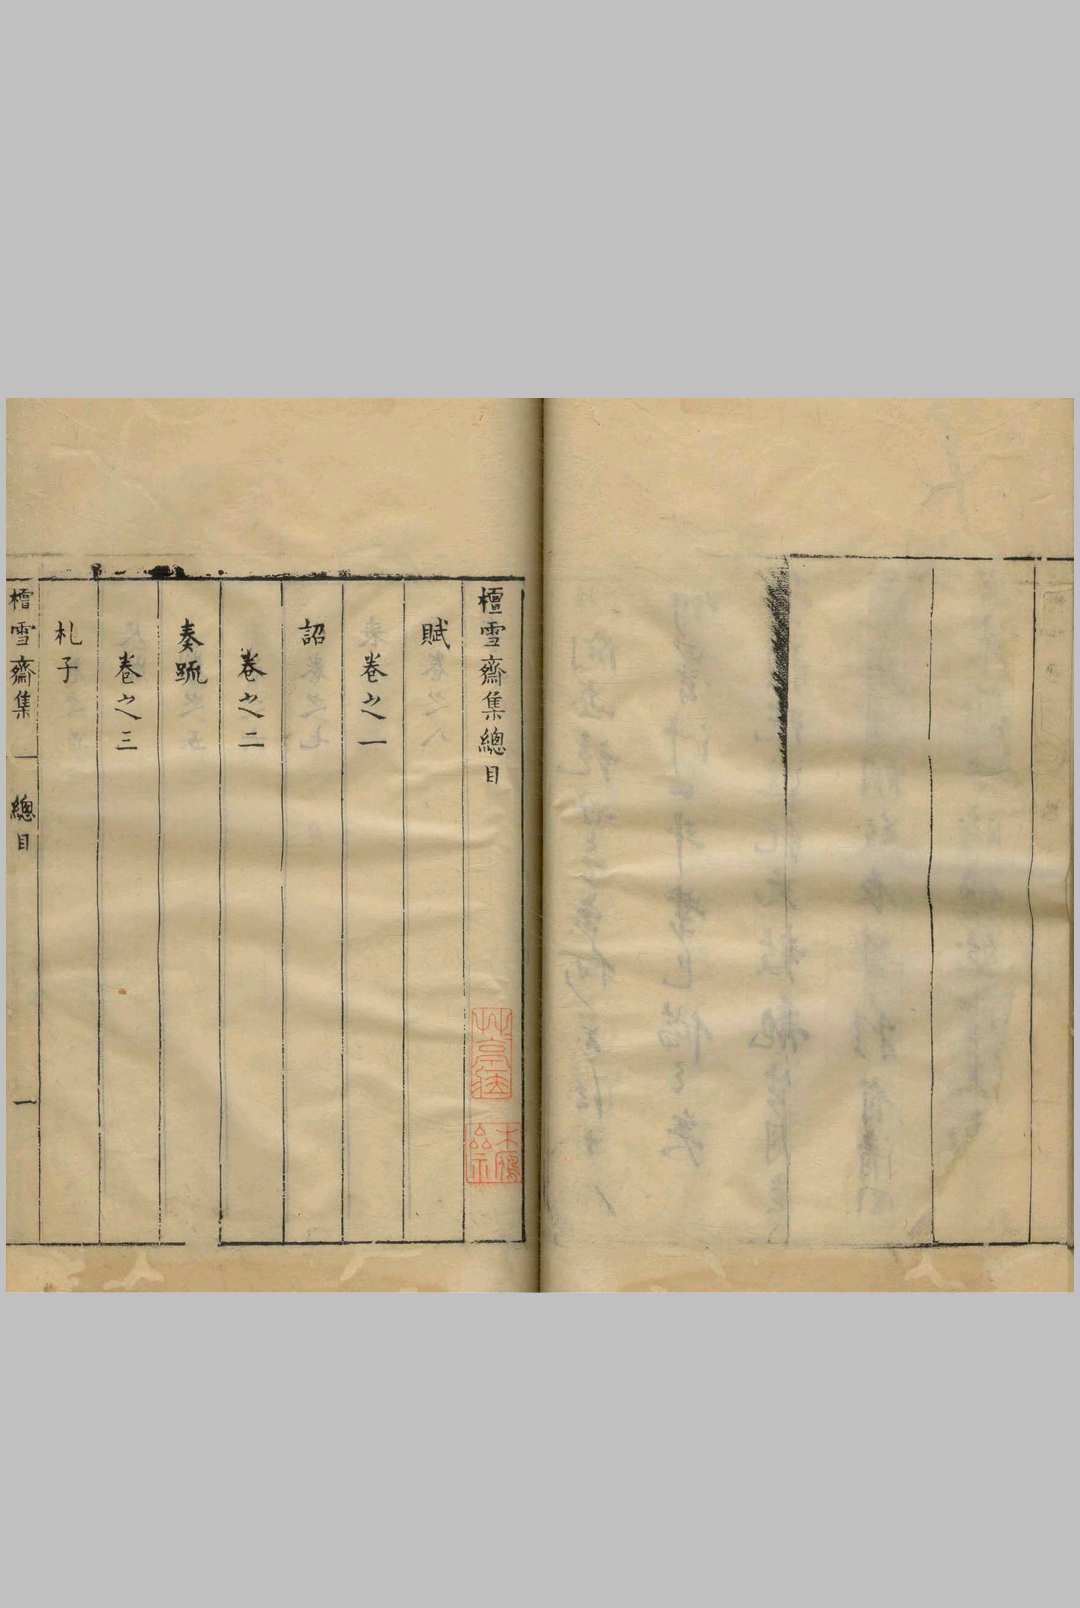 檀雪齋集總目
賦
卷之一
詔
卷之二
奏疏
卷之三
札子
檀雪齋集 總目 一